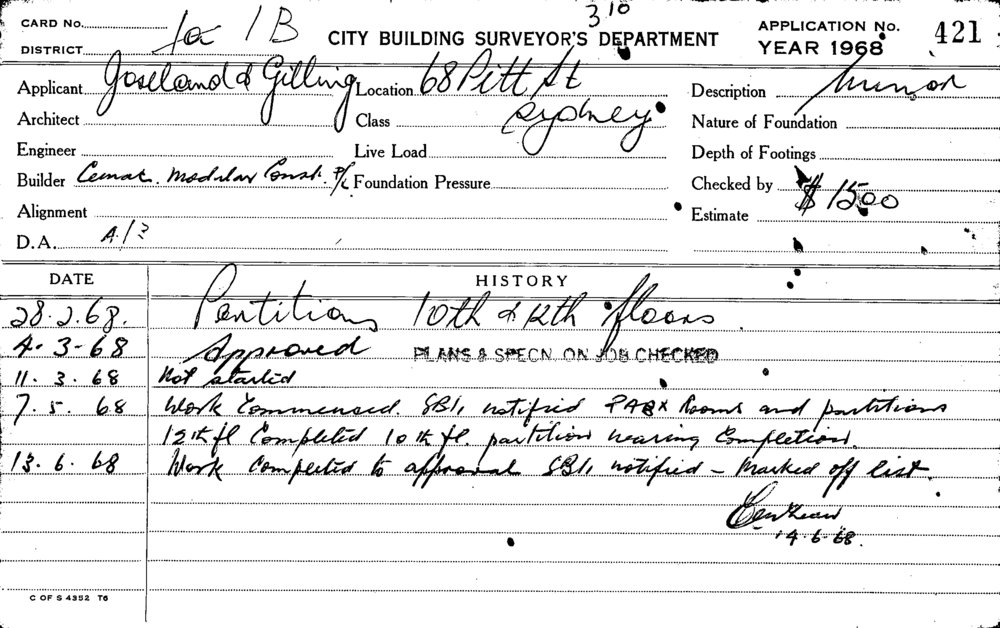 CARD No. 1a 1B
310
CITY BUILDING SURVEYOR'S DEPARTMENT
APPLICATION No. 421
DISTRICT
YEAR 1968
Applicant Joseland & Gilling Location 68 Pitt St Description Minor
Architect Class Sydney Nature of Foundation
Engineer Live Load Depth of Footings
Builder Cemac Modular Const. P/L Foundation Pressure Checked by
Alignment Estimate $1500
D.A.
DATE HISTORY
28.2.68. Partitions 10th & 12th floors
4-3-68 Approved PLANS & SPECN. ON JOB CHECKED
11.3.68 Not started
7.5.68 Work Commenced. SB1, notified PABX Rooms and partitions
12th fl Completed 10th fl. partition nearing Completion.
13.6.68 Work Completed to approval SB1, notified - Marked off list.
14-6-68.
C OF S 4352 T6